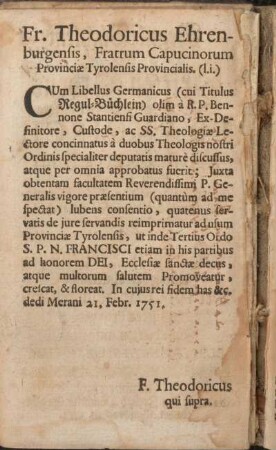 Fr. Theodoricus Ehren-
burgensis, Fratrum Capucinorum
Provinciæ Tyrolensis Provincialis. (l.i.)
CUm Libellus Germanicus (cui Titulus
Regul-Büchlein) olim à R.P. Ben-
none Stantiensi Guardiano, Ex-De-
finitore, Custode, ac SS, Theologiæ Le-
ctore concinnatus à duobus Theologis nostri
Ordinis specialiter deputatis maturè discussus,
atque per omnia approbatus fuerit; Juxta
obtentam facultatem Reverendissimi P. Ge-
neralis vigore præsentium (quantùm ad me
spectat) lubens consentio, quatenus ser-
vatis de jure servandis reimprimatur ad usum
Provinciæ Tyrolensis, ut inde Tertius Ordo
S. P. N. FRANCISCI etiam in his partibus
ad honorem DEI, Ecclesiæ sanctæ decus,
atque multorum salutem Promoveatur,
crescat, & floreat. In cujus rei fidem has &c.
dedi Merani 21. Febr. 1751.
F. Theodoricus
qui supra.